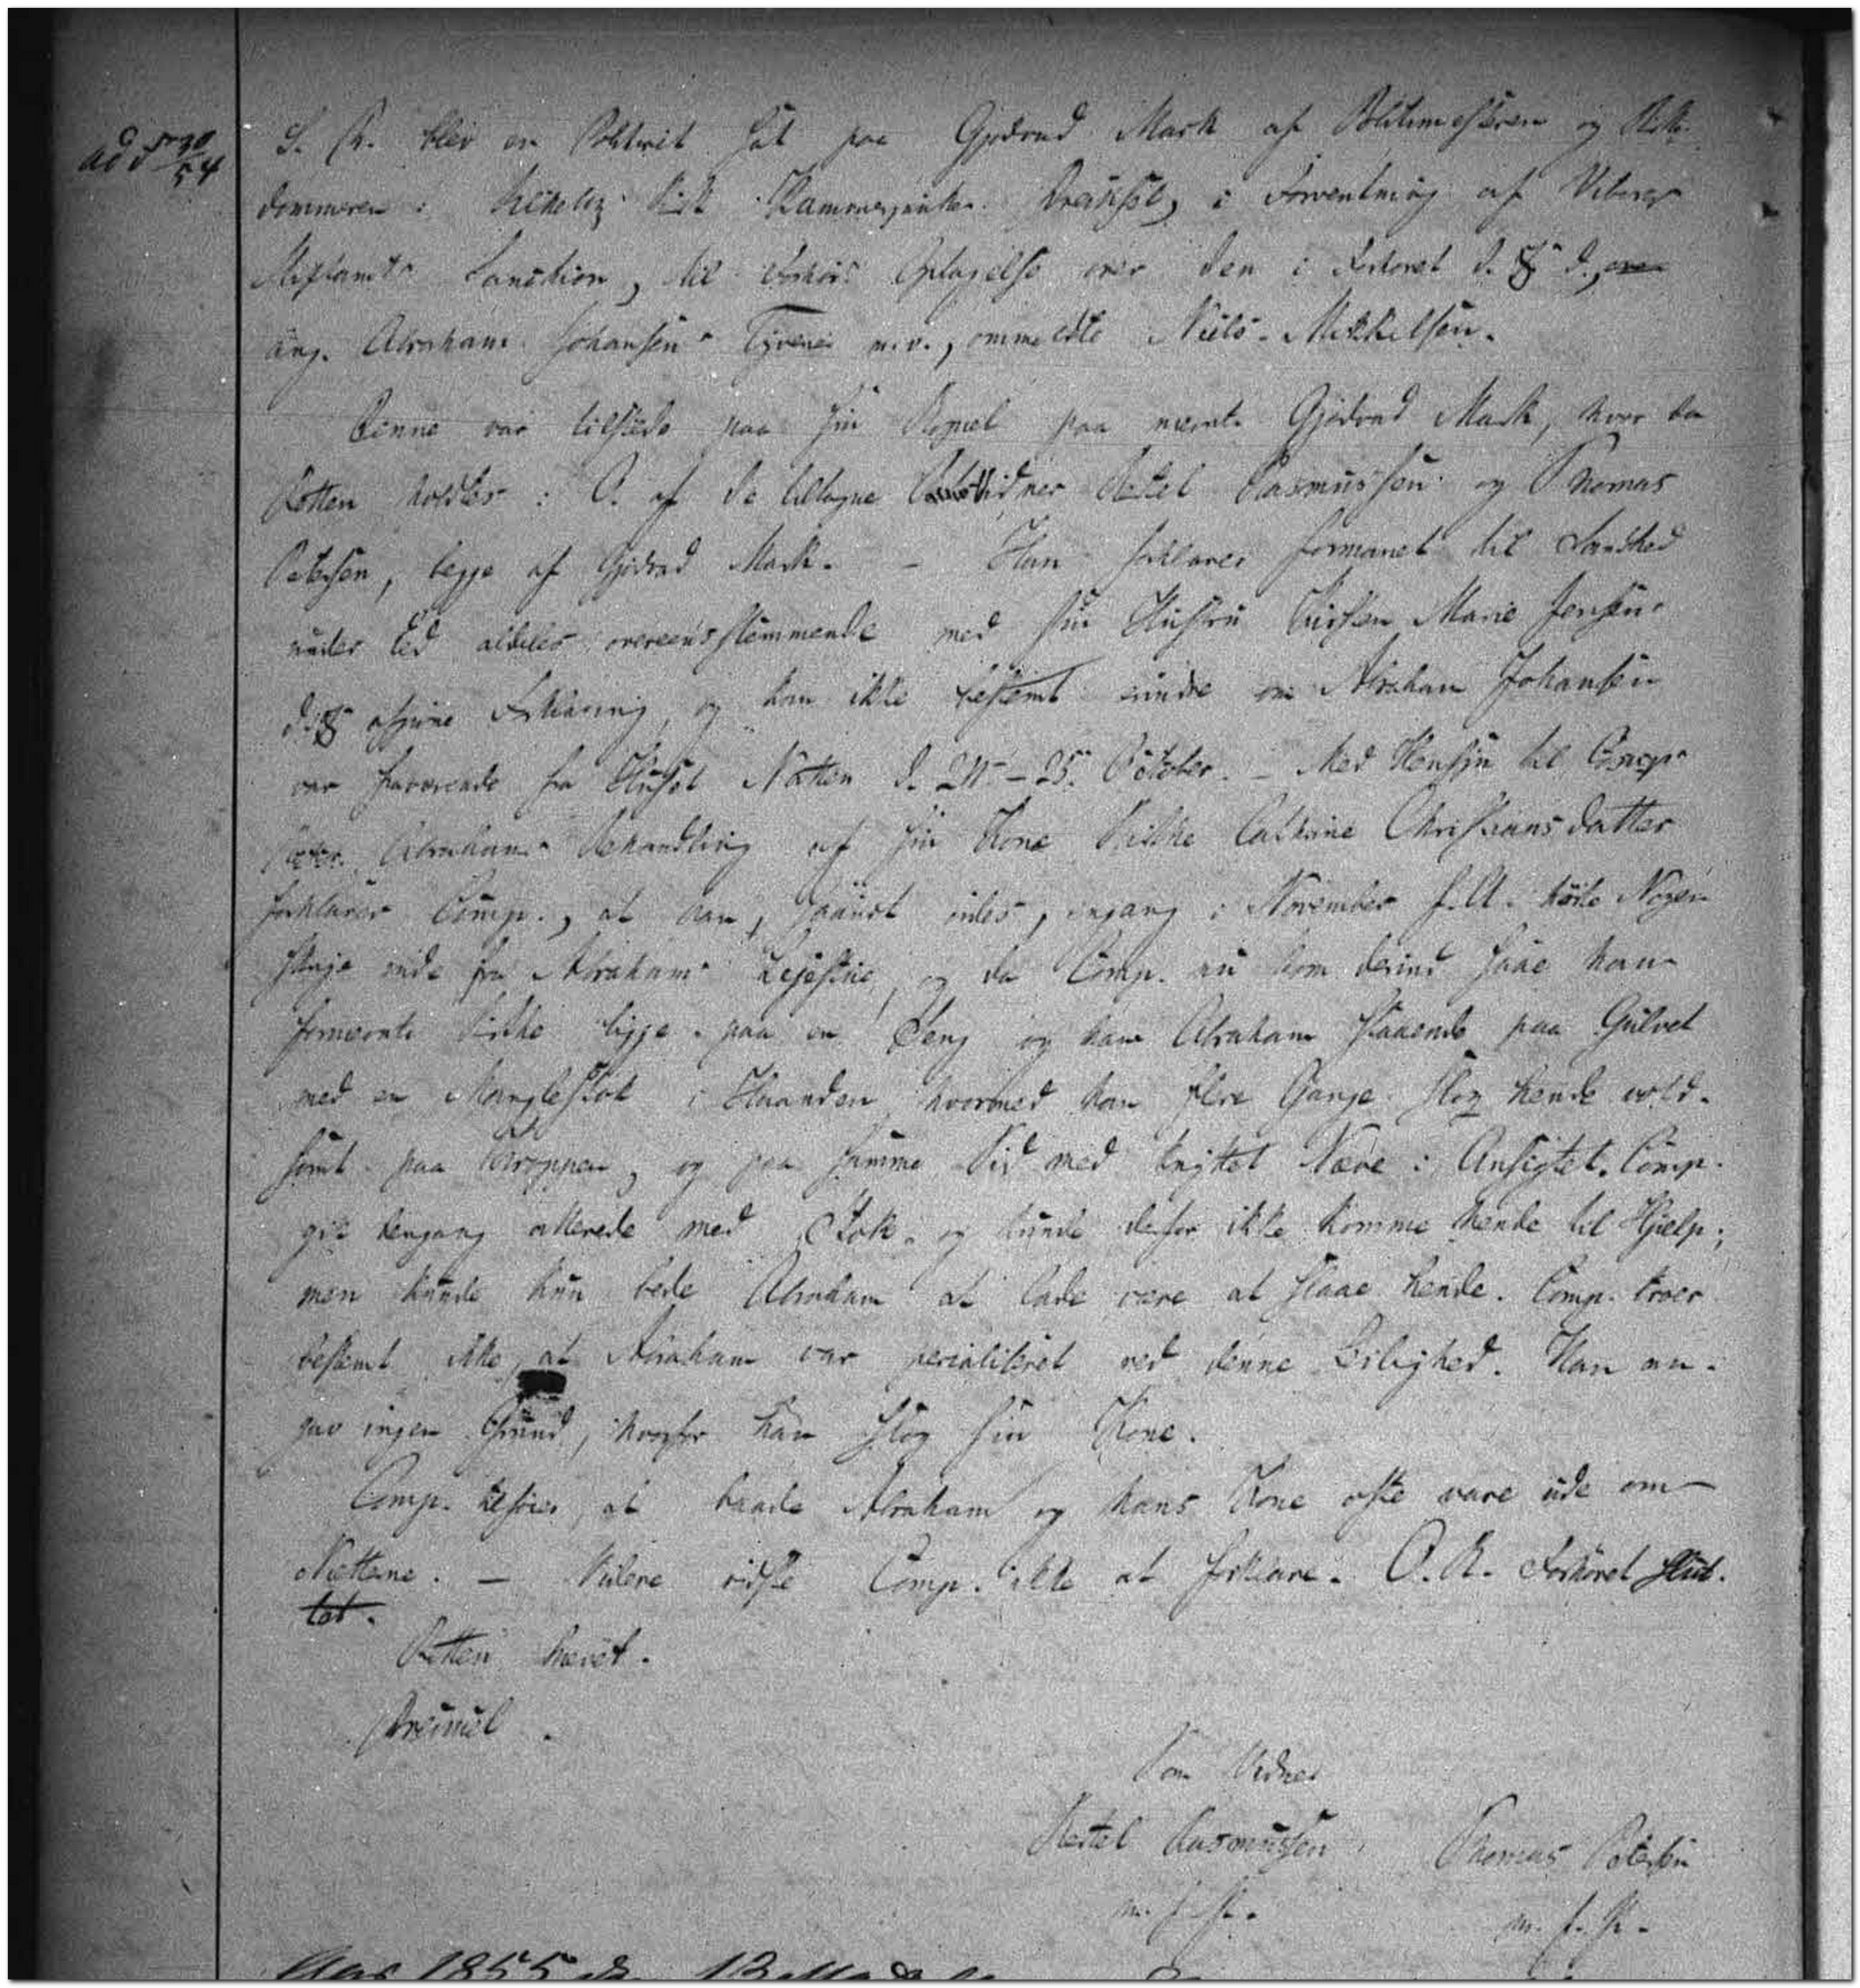 ad 5 30/54
S. D. blev en Politiret sat paa Gjødvad Mark af Politimesteren og
dommeren i Kammerjunker i Forventning af Viborg
Stiftamts Sanction, til Forhørs Optagelse over den i Forhøret d. 8 d.,
ang. Abraham Johansens Tyverie m.v., ommeldte Niels Mikkelsen.
Denne var tilstede paa sin Bopæl paa nævnte Gjødvad Mark, hvor da
Retten holdtes i O. af de tiltagne Vidner Kjeld Rasmussen og Thomas
Petersen, begge af Gjødvad Mark. - Han forklarer formanet til Sandhed
under Ed aldeles overeensstemmende med sin Hustru Kirsten Marie Jensens
d. 8 afgivne Forklaring, og kan ikke bestemt erindre om Abraham Johansen
var fraværende fra Huset Natten d. 24 - 25. October. - Med Hensyn til
Abrahams Behandling af sin Kone Cathrine Christiansdatter
forklarer Comp., at han, saavidt vides, engang i November f. A. hørte Nogen
skrige inde fra Abrahams Leiestue, og da Comp. nu kom derind saae han
fornævnte ligge paa en Seng og han Abraham staaende paa Gulvet
med en Manglestok i Haanden, hvormed han flere Gange slog hende vold-
somt paa Kroppen, og paa samme Tid med knyttet Næve i Ansigtet. Comp.
gik dengang allerede med Stok og kunde derfor ikke komme hende til Hjælp;
men kunde kun bede Abraham at lade være at slaae hende. Comp. troer
bestemt ikke, at Abraham var ved denne Leilighed. Han an-
gav ingen Grund, hvorfor han slog sin Kone.
Comp. tilføier, at baade Abraham og hans Kone ofte vare ude om
Nættene. - Videre vidste Comp. ikke at forklare. O. R. Forhøret slut-
tet.
Retten hævet.
Som Vidner
Kjeld Rasmussen Thomas Petersen
m. f. P. m. f. P.
Aar 1855 den 13